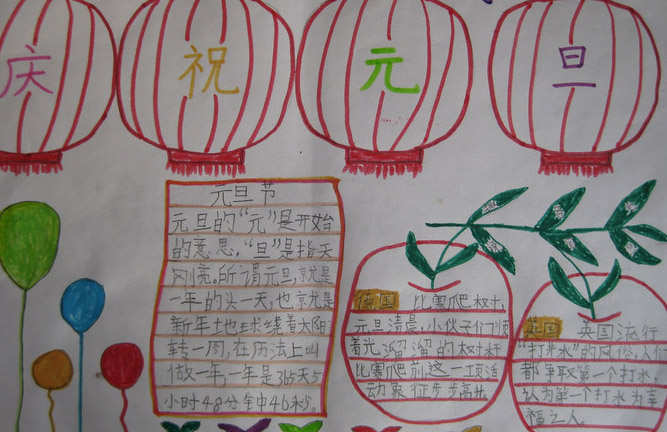 庆祝元旦
元旦节
元旦的“元”是开始
的意思,“旦”是指天
刚亮。所谓元旦,就是
一年的头一天,也就是
新年地球绕着太阳
转一周,在历法上叫
做一年,一年是365天5
小时48分钟46秒。
德国 比赛爬树,
元旦清晨,小伙子们顺
着光溜溜的树杆
比赛爬前,这一项活
动象征步步高升。
英国 英国流行
“打井水”的风俗,人们
都争取第一个打水,
认为第一个打水为幸
福之人。